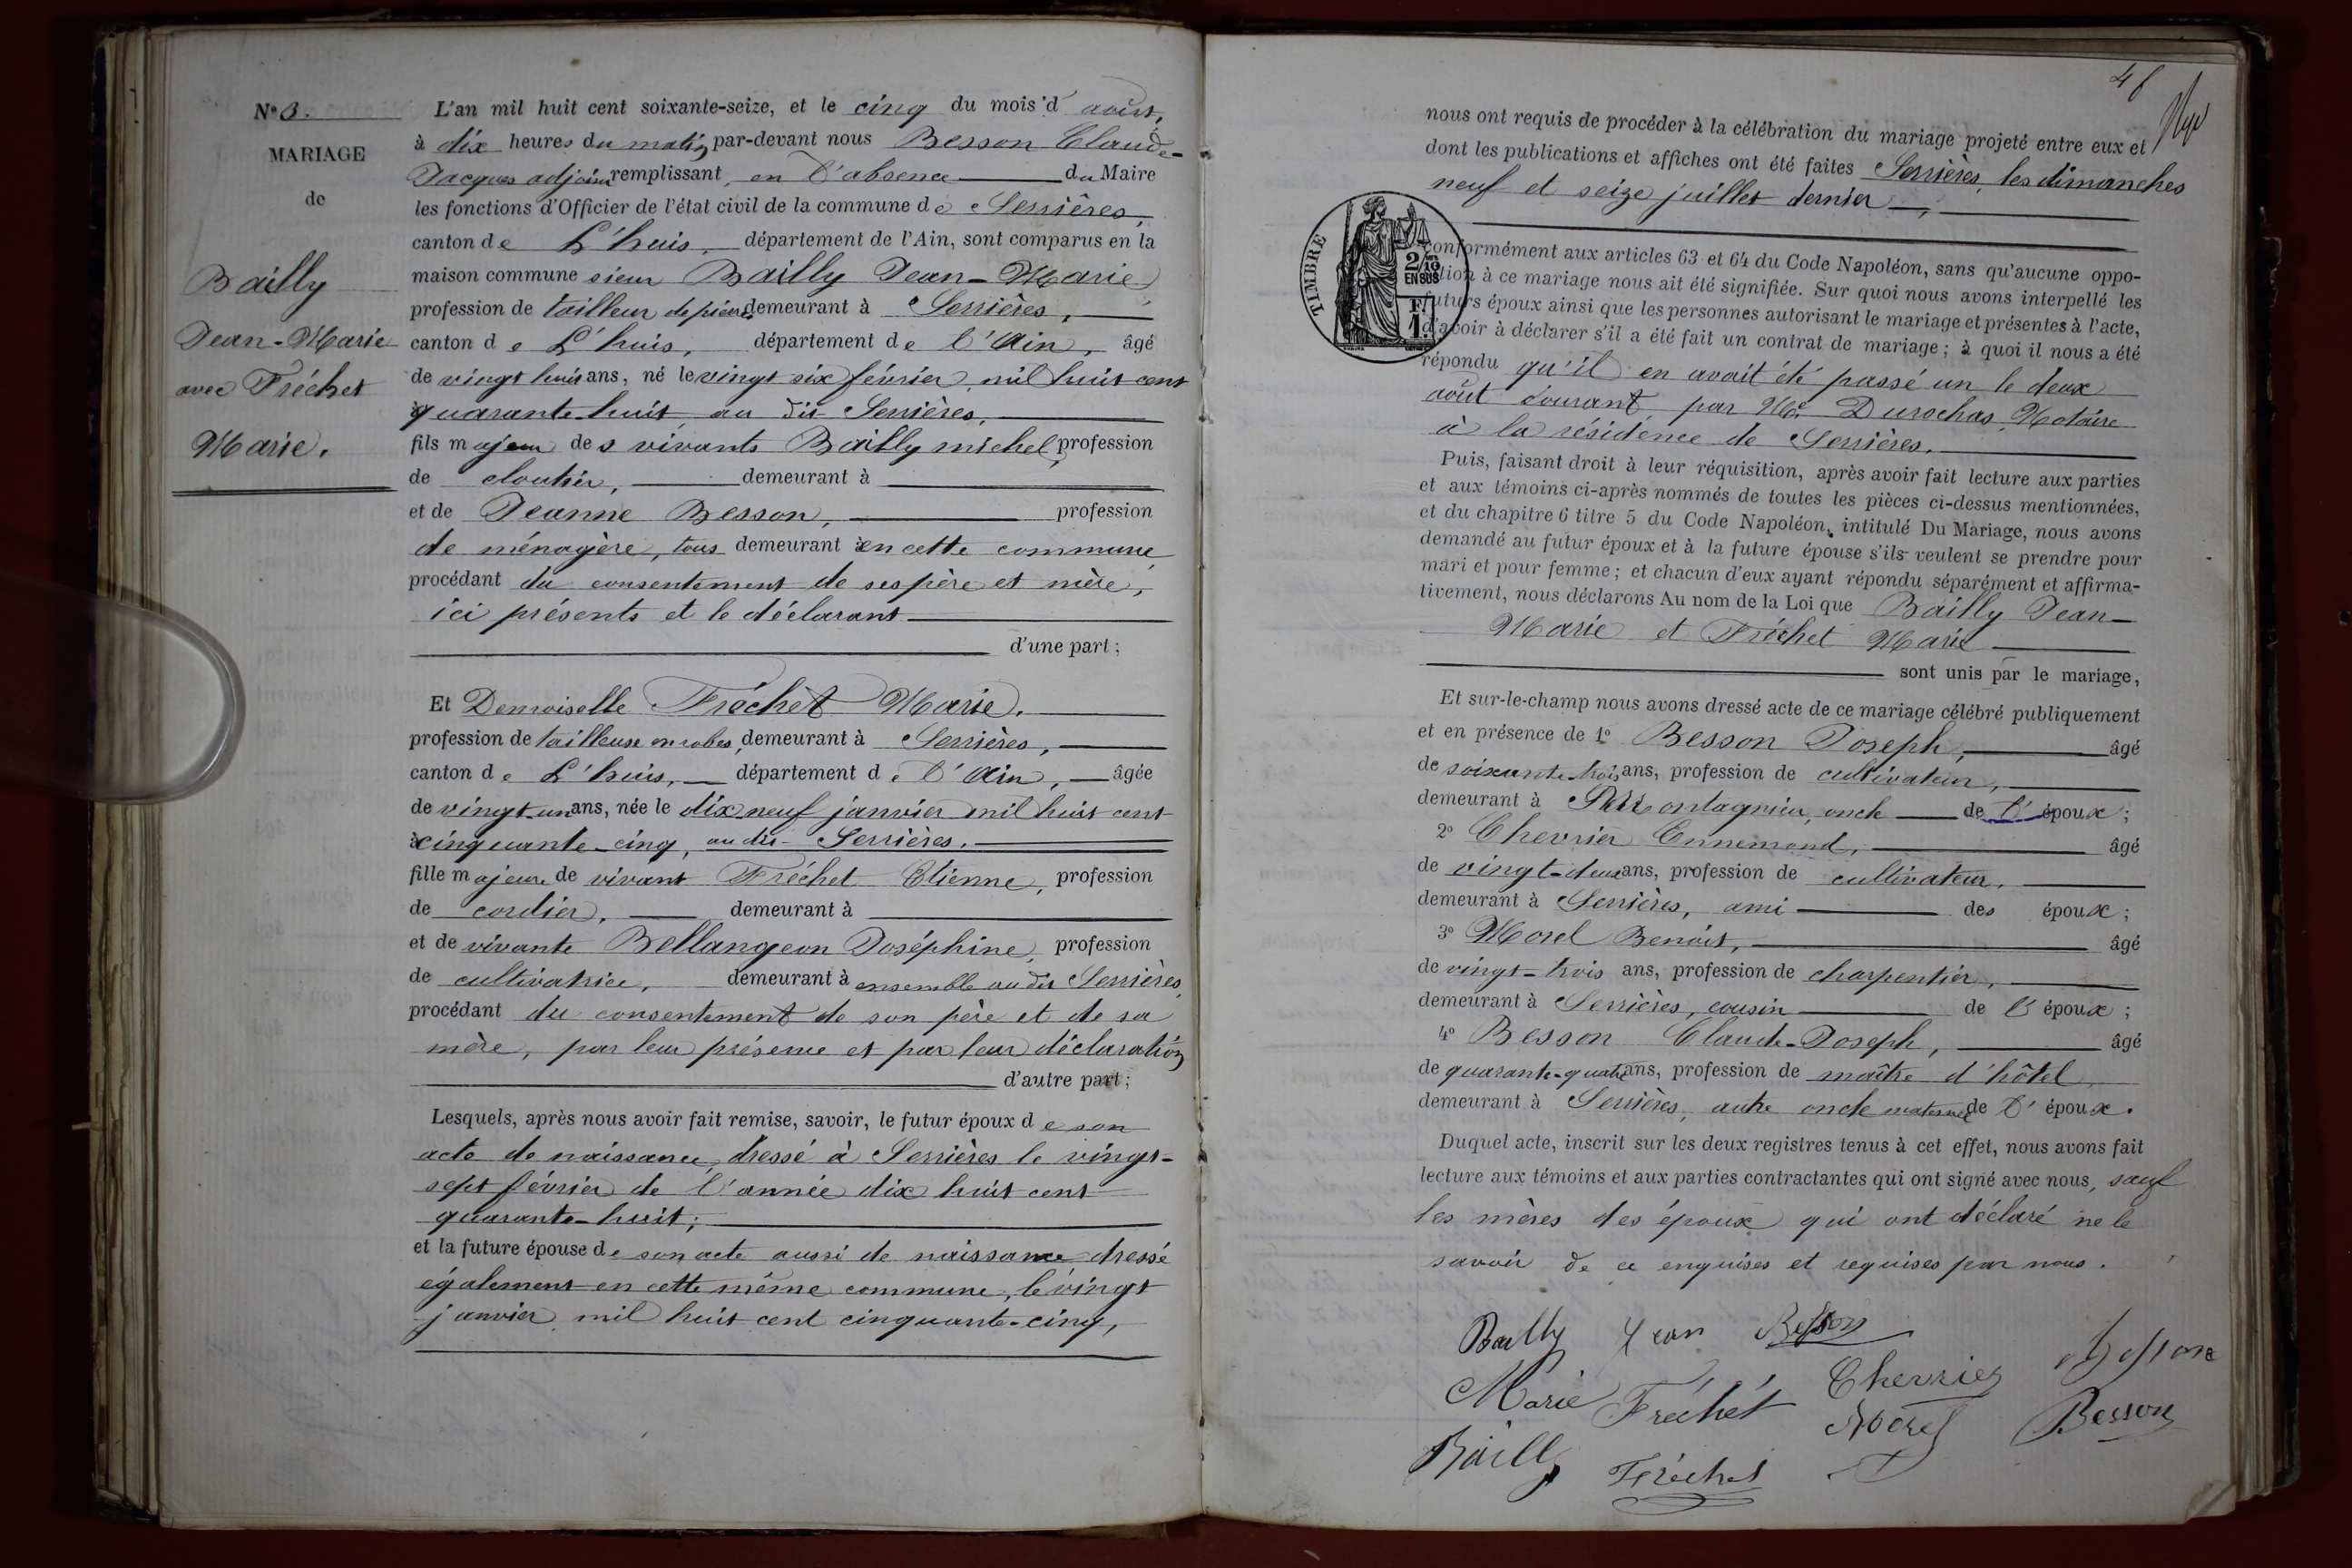 N° 3.
MARIAGE
de
Bailly
Jean-Marie
avec Fréchet
Marie.
L'an mil huit cent soixante-seize, et le cinq du mois d'août,
à dix heures du matin, par-devant nous Besson Claude-
Jacques adjoint remplissant, en l'absence du Maire
les fonctions d'Officier de l'état civil de la commune de Serrières,
canton de L'huis, département de l'Ain, sont comparus en la
maison commune sieur Bailly Jean-Marie
profession de tailleur de pierres demeurant à Serrières,
canton de L'huis, département de l'Ain, âgé
de vingt huit ans, né le vingt six février mil huit cent
à quarante-huit au dit Serrières,
fils majeur des vivants Bailly michel, profession
de cloutier, demeurant à
et de Jeanne Besson, profession
de ménagère, tous demeurant à en cette commune
procédant du consentement de ses père et mère,
ici présents et le déclarant
d'une part;
Et Demoiselle Fréchet Marie.
profession de tailleuse en robes, demeurant à Serrières,
canton de L'huis, département de l'Ain, âgée
de vingt-un ans, née le dix-neuf janvier mil huit cent
à cinquante-cinq, au dit Serrières.
fille majeure de vivant Fréchet Etienne, profession
de cordier, demeurant à
et de vivante Bellangeon Joséphine, profession
de cultivatrice, demeurant à ensemble au dit Serrières,
procédant du consentement de son père et de sa
mère, par leur présence et par leur déclaration
d'autre part;
Lesquels, après nous avoir fait remise, savoir, le futur époux de son
acte de naissance, dressé à Serrières le vingt-
sept février de l'année dix huit cent
quarante-huit;
et la future épouse de son acte aussi de naissance dressé
également en cette même commune, le vingt
janvier mil huit cent cinquante-cinq,
nous ont requis de procéder à la célébration du mariage projeté entre eux et
dont les publications et affiches ont été faites Serrières, les dimanches
neuf et seize juillet dernier,
TIMBRE
2/10 EN SUS
F. 1.
conformément aux articles 63 et 64 du Code Napoléon, sans qu'aucune oppo-
sition à ce mariage nous ait été signifiée. Sur quoi nous avons interpellé les
futurs époux ainsi que les personnes autorisant le mariage et présentes à l'acte,
d'avoir à déclarer s'il a été fait un contrat de mariage; à quoi il nous a été
répondu qu'il en avait été passé un le deux
août courant, par Me. Durochas, Notaire
à la résidence de Serrières.
Puis, faisant droit à leur réquisition, après avoir fait lecture aux parties
et aux témoins ci-après nommés de toutes les pièces ci-dessus mentionnées,
et du chapitre 6 titre 5 du Code Napoléon, intitulé Du Mariage, nous avons
demandé au futur époux et à la future épouse s'ils veulent se prendre pour
mari et pour femme; et chacun d'eux ayant répondu séparément et affirma-
tivement, nous déclarons Au nom de la Loi que Bailly Jean-
Marie et Fréchet Marie
sont unis par le mariage,
Et sur-le-champ nous avons dressé acte de ce mariage célébré publiquement
et en présence de 1° Besson Joseph, âgé
de soixante-trois ans, profession de cultivateur,
demeurant à Montagnieu, oncle de l'époux;
2° Chevrier Ennemond, âgé
de vingt-deux ans, profession de cultivateur,
demeurant à Serrières, ami des époux;
3° Morel Benoit, âgé
de vingt-trois ans, profession de charpentier,
demeurant à Serrières, cousin de l'époux;
4° Besson Claude-Joseph, âgé
de quarante-quatre ans, profession de maître d'hôtel,
demeurant à Serrières, autre oncle maternel de l'époux.
Duquel acte, inscrit sur les deux registres tenus à cet effet, nous avons fait
lecture aux témoins et aux parties contractantes qui ont signé avec nous, sauf
les mères des époux qui ont déclaré ne le
savoir de ce enquises et requises par nous.
Bailly Jean Besson
Marie Fréchet Chevrier Besson
Bailly Fréchet Morel Besson